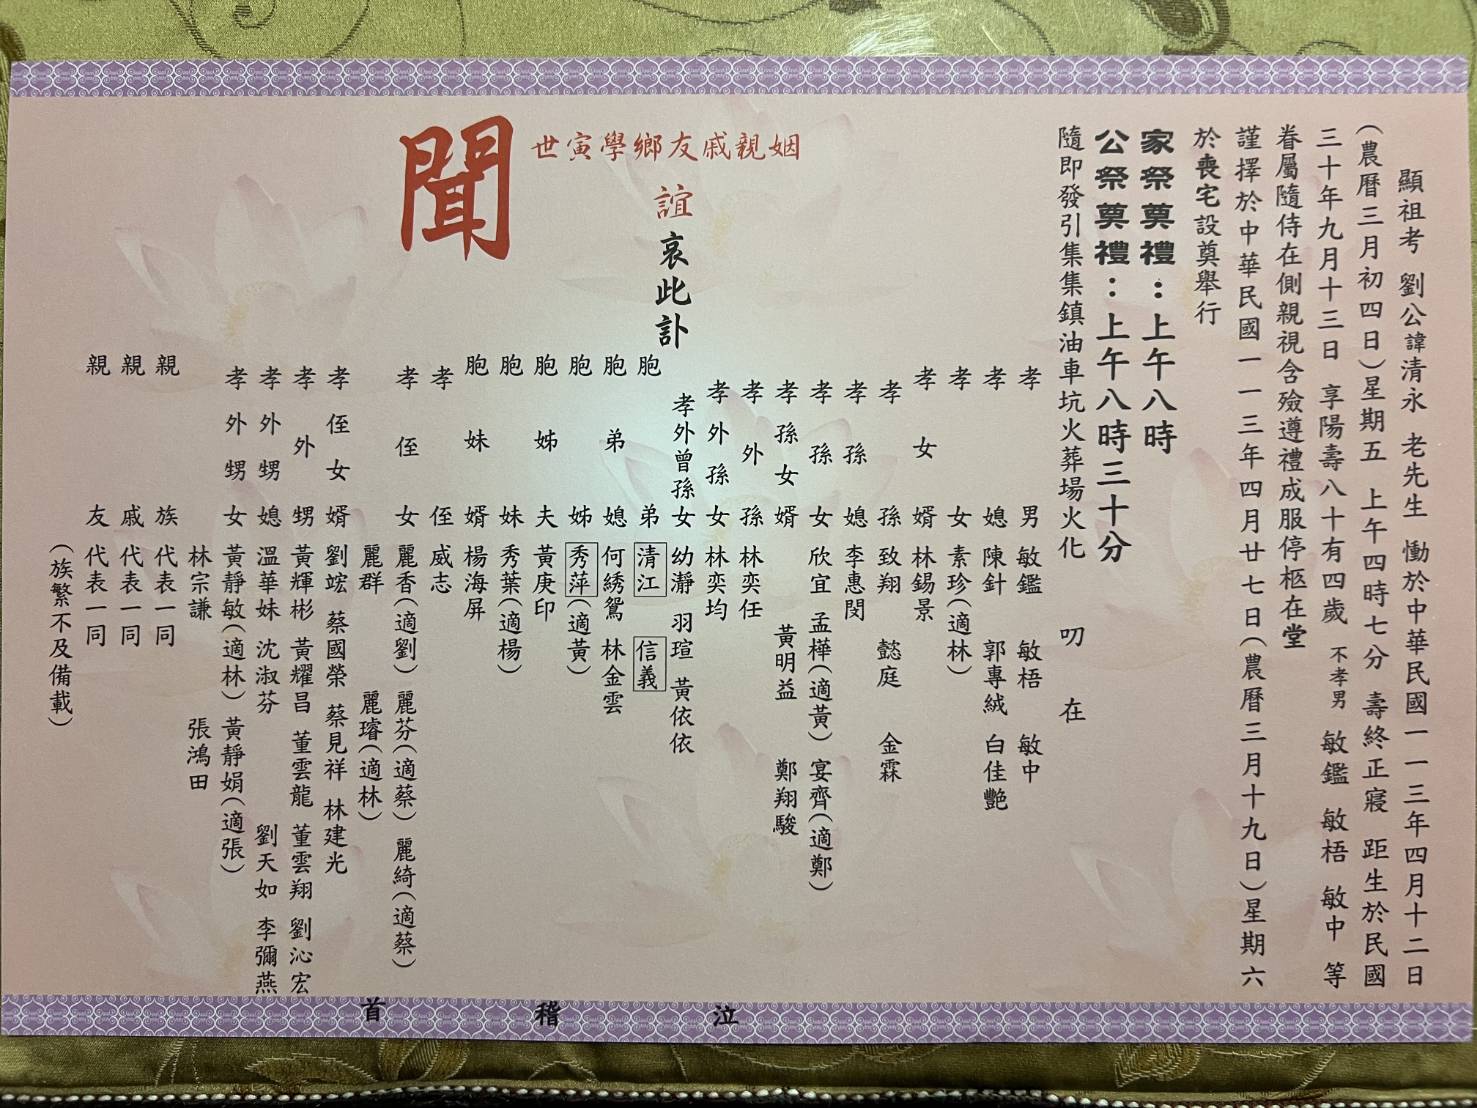 顯祖考 劉公諱清永 老先生 慟於中華民國一一三年四月十二日
(農曆三月初四日)星期五 上午四時七分 壽終正寢 距生於民國
三十年九月十三日 享陽壽八十有四歲 不孝男 敏鑑 敏梧 敏中 等
眷屬隨侍在側親視含殮遵禮成服停柩在堂
謹擇於中華民國一一三年四月廿七日(農曆三月十九日)星期六
於喪宅設奠舉行
家祭奠禮：上午八時
公祭奠禮：上午八時三十分
隨即發引集集鎮油車坑火葬場火化 叨在
姻親戚友鄉學寅世
誼 哀此訃
聞
孝男 敏鑑 敏梧 敏中
孝媳 陳針 郭專絨 白佳艷
孝女 素珍(適林)
孝女婿 林錫景
孝孫 致翔 懿庭 金霖
孝孫媳 李惠閔
孝孫女 欣宜 孟樺(適黃) 宴齊(適鄭)
孝孫女婿 黃明益 鄭翔駿
孝外孫 林奕任
孝外孫女 林奕均
孝外曾孫女 幼瀞 羽瑄 黃依依
胞弟 清江 信義
胞弟媳 何綉鴛 林金雲
胞姊 秀萍(適黃)
胞姊夫 黃庚印
胞妹 秀葉(適楊)
胞妹婿 楊海屏
孝侄 威志
孝侄女 麗香(適劉) 麗芬(適蔡) 麗綺(適蔡)
麗群 麗璿(適林)
孝侄女婿 劉竤 蔡國榮 蔡見祥 林建光
孝外甥 黃輝彬 黃耀昌 董雲龍 董雲翔 劉沁宏
孝外甥媳 溫華妹 沈淑芬 劉天如 李彌燕
孝外甥女 黃靜敏(適林) 黃靜娟(適張)
林宗謙 張鴻田
親族代表一同
親戚代表一同
親友代表一同
(族繁不及備載)
泣 稽 首